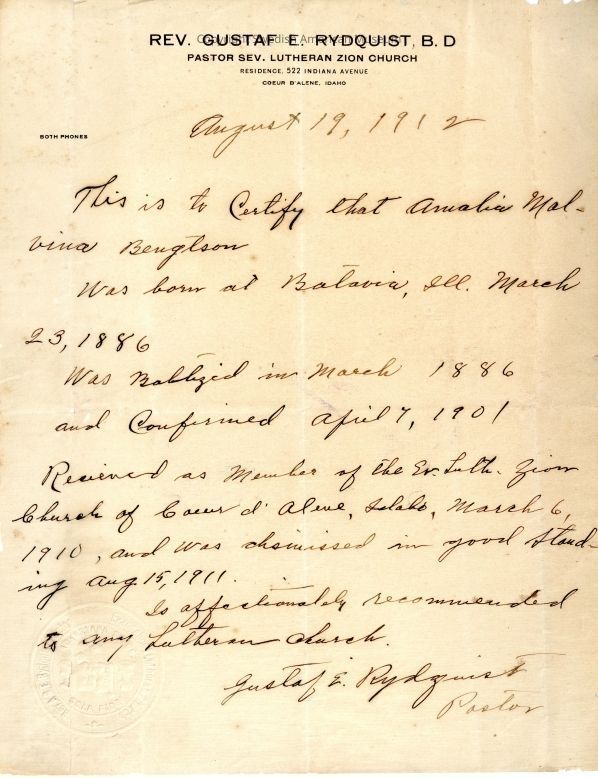 Copyright Swedish American Museum
REV. GUSTAF E. RYDQUIST, B. D
PASTOR SEV. LUTHERAN ZION CHURCH
RESIDENCE, 522 INDIANA AVENUE
COEUR D'ALENE, IDAHO
BOTH PHONES
August 19, 1912
This is to Certify that Amalia Mal-
vina Bengtson
Was born at Batavia, Ill. March
23, 1886
Was Babtized in March 1886
and Confirmed April 7, 1901
Recieved as Member of the Ev. Luth. Zion
Church of Coeur d'Alene, Idaho, March 6,
1910, and was dismissed in good stand-
ing Aug 15, 1911.
Is affectionately recommended
to any Lutheran church.
Gustaf E. Rydquist
Pastor